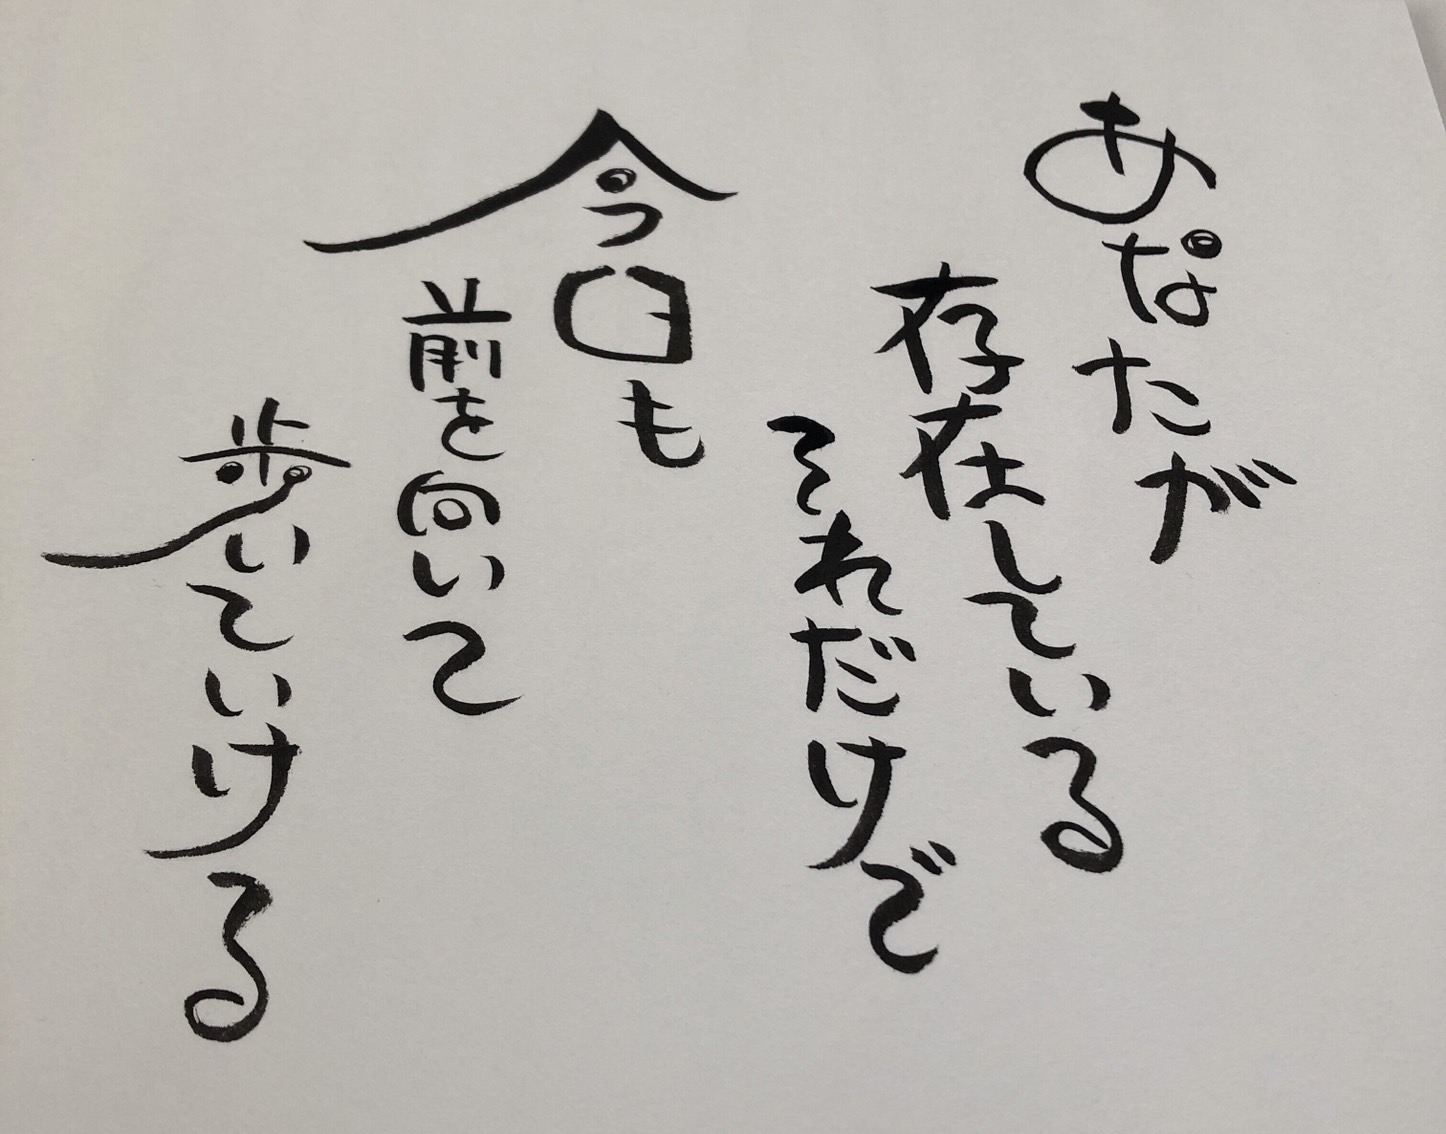 あなたが
存在している
それだけで
今日も
前を向いて
歩いていける